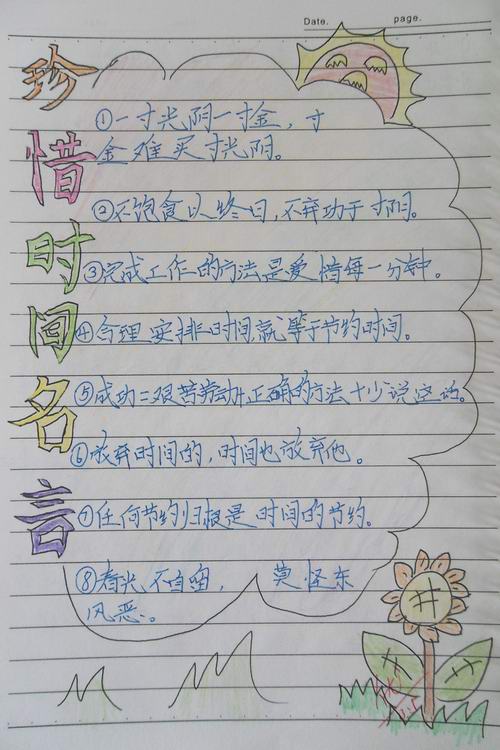 Date. page.
珍惜时间名言
①一寸光阴一寸金,寸
金难买寸光阴。
②不饱食以终日,不弃功于寸阴。
③完成工作的方法是爱惜每一分钟。
④合理安排时间,就等于节约时间。
⑤成功=艰苦劳动+正确的方法+少说空话。
⑥放弃时间的,时间也放弃他。
⑦任何节约归根是时间的节约。
⑧春光不自留,莫怪东
风恶。